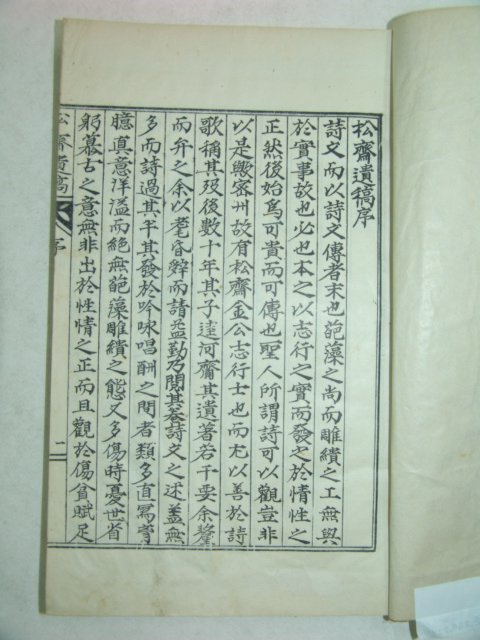 松齋遺稿序
詩文而以詩文傳者末也葩藻之尚而雕繢之工無與
於實事故也必也本之以志行之實而發之於情性之
正然後始爲可貴而可傳也聖人所謂詩可以觀豈非
以是歟密州故有松齋金公志行士也而尤以善於詩
歌稱其歿後數十年其子達河齎其遺著若干要余釐
而弁之余以耄昏辭而請益勤乃閱其藁詩文之述蓋無
多而詩過其半其發於吟咏唱酬之間者類多直寫胷
臆眞意洋溢而絕無葩藻雕繢之態又多傷時憂世省
躬慕古之意無非出於性情之正而且觀於傷貧賦足
松齋遺稿
序
一